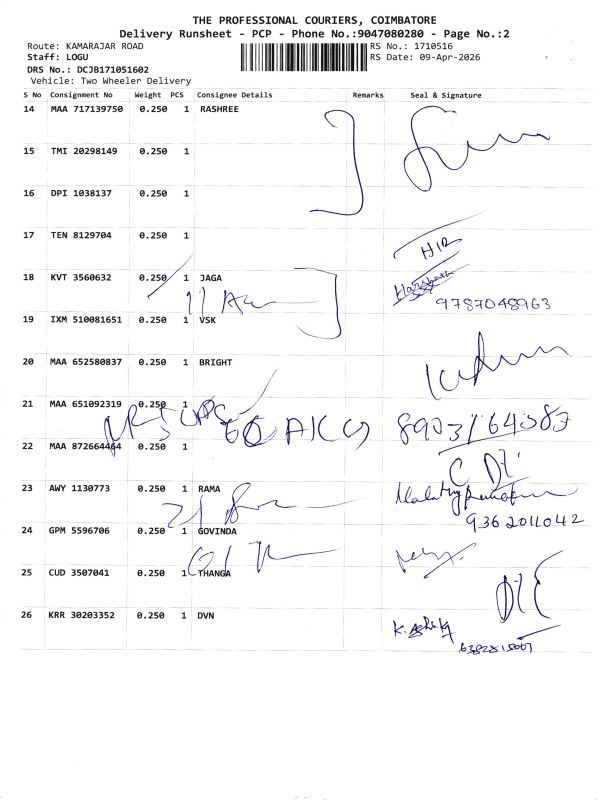 THE PROFESSIONAL COURIERS, COIMBATORE
Delivery Runsheet - PCP - Phone No.:9047080280 - Page No.:2
Route: KAMARAJAR ROAD
RS No.: 1710516
Staff: LOGU
RS Date: 09-Apr-2026
DRS No.: DCJB171051602
Vehicle: Two Wheeler Delivery
S No Consignment No Weight PCS Consignee Details Remarks Seal & Signature
14 MAA 717139750 0.250 1 RASHREE
15 TMI 20298149 0.250 1
16 DPI 1038137 0.250 1
17 TEN 8129704 0.250 1
18 KVT 3560632 0.250 1 JAGA
9787048963
19 IXM 510081651 0.250 1 VSK
20 MAA 652580837 0.250 1 BRIGHT
21 MAA 651092319 0.250 1
22 MAA 872664464 0.250 1
23 AWY 1130773 0.250 1 RAMA
9362011042
24 GPM 5596706 0.250 1 GOVINDA
25 CUD 3507041 0.250 1 THANGA
26 KRR 30203352 0.250 1 DVN